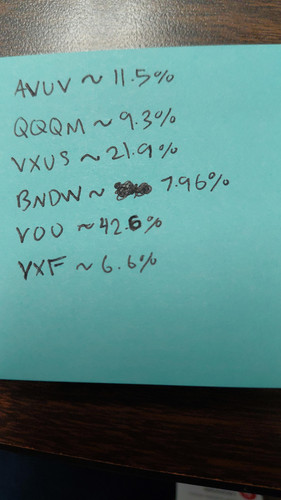 AVUV ~ 11.5%
QQQM ~ 9.3%
VXUS ~ 21.9%
BNDW ~ 7.96%
VOO ~ 42.6%
VXF ~ 6.6%